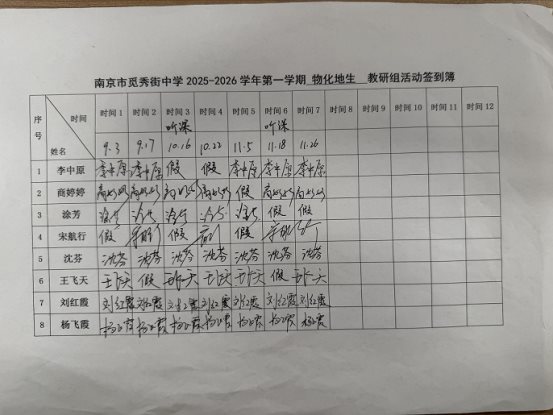 南京市觅秀街中学 2025-2026 学年第一学期 物化地生 教研组活动签到簿
序号 时间 姓名 时间 1 时间 2 时间 3 时间 4 时间 5 时间 6 时间 7 时间 8 时间 9 时间 10 时间 11 时间 12
听课 听课
9.3 9.17 10.16 10.22 11.5 11.18 11.26
1 李中原 李中原 李中原 假 假 李中原 李中原 李中原
2 商婷婷 商婷婷 商婷婷 商婷婷 商婷婷 假 商婷婷 商婷婷
3 涂芳 涂芳 涂芳 涂芳 涂芳 涂芳 假 假
4 宋航行 假 宋航行 假 假 宋航行
5 沈芬 沈芬 沈芬 沈芬 沈芬 沈芬 沈芬 沈芬
6 王飞天 王飞天 假 王飞天 王飞天 王飞天 假 王飞天
7 刘红霞 刘红霞 刘红霞 刘红霞 刘红霞 刘红霞 刘红霞 刘红霞
8 杨飞霞 杨飞霞 杨飞霞 杨飞霞 杨飞霞 杨飞霞 杨飞霞 杨飞霞